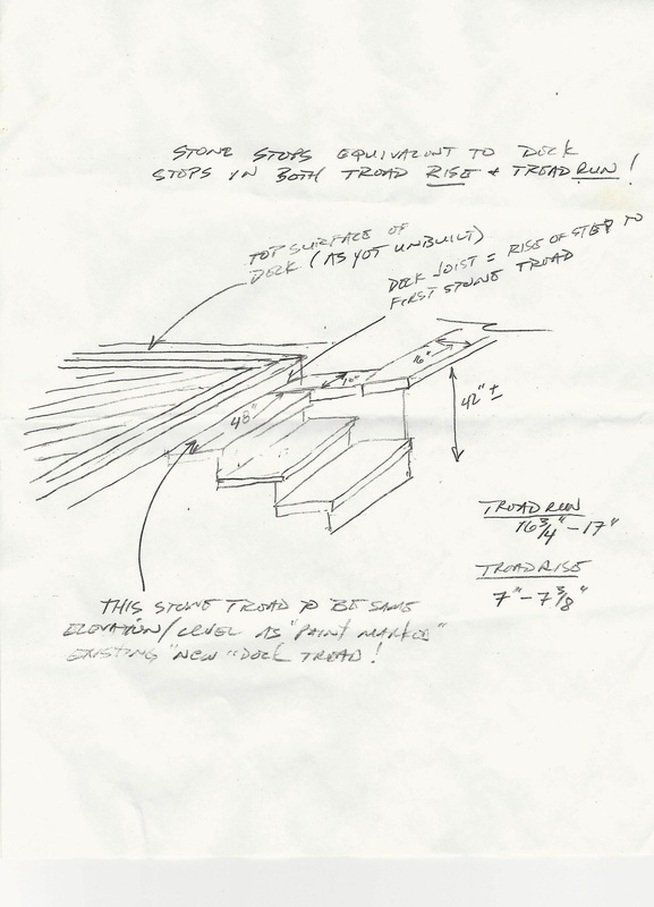 STONE STEPS EQUIVALENT TO DECK
STEPS IN BOTH TREAD RISE & TREAD RUN!
TOP SURFACE OF
DECK (AS YET UNBUILT)
DECK JOIST = RISE OF STEP TO
FIRST STONE TREAD
16"
10"
48"
42" ±
TREAD RUN
16 3/4" - 17"
TREAD RISE
7" - 7 3/8"
THIS STONE TREAD TO BE SAME
ELEVATION/LEVEL AS "PAINT MARKED"
EXISTING "NEW" DECK TREAD!